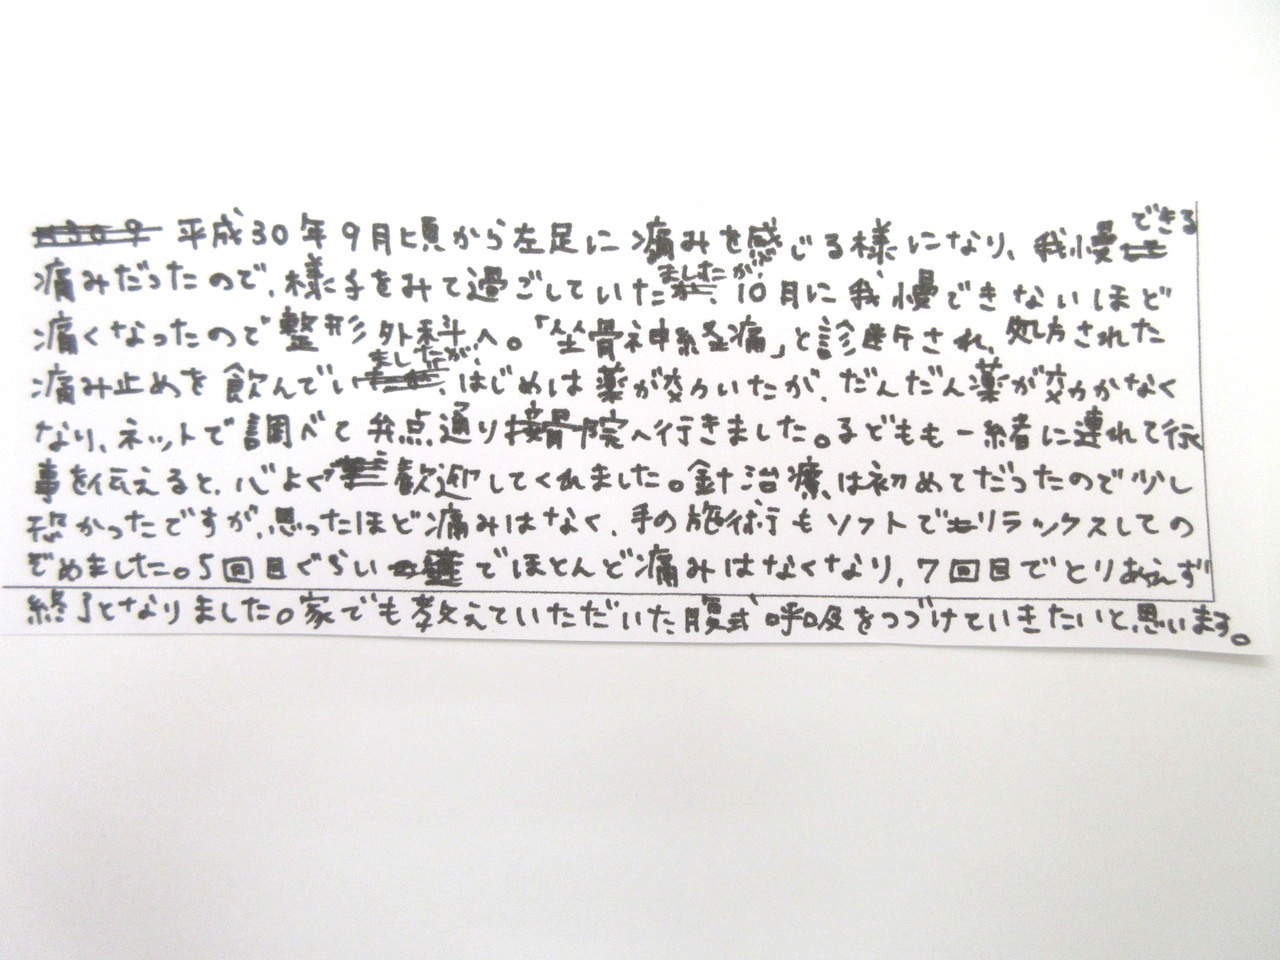 平成30年9月頃から左足に痛みを感じる様になり、我慢できる
痛みだったので、様子をみて過ごしていましたが、10月に我慢できないほど
痛くなったので整形外科へ。「坐骨神経痛」と診断され、処方された
痛み止めを飲んでいましたが、はじめは薬が効いたが、だんだん薬が効かなく
なり、ネットで調べて弁点通り接骨院へ行きました。子どもも一緒に連れて行く
事を伝えると、心よく歓迎してくれました。針治療は初めてだったので少し
恐かったですが、思ったほど痛みはなく、手の施術もソフトでリラックスしての
ぞめました。5回目ぐらいでほとんど痛みはなくなり、7回目でとりあえず
終了となりました。家でも教えていただいた腹式呼吸をつづけていきたいと思います。